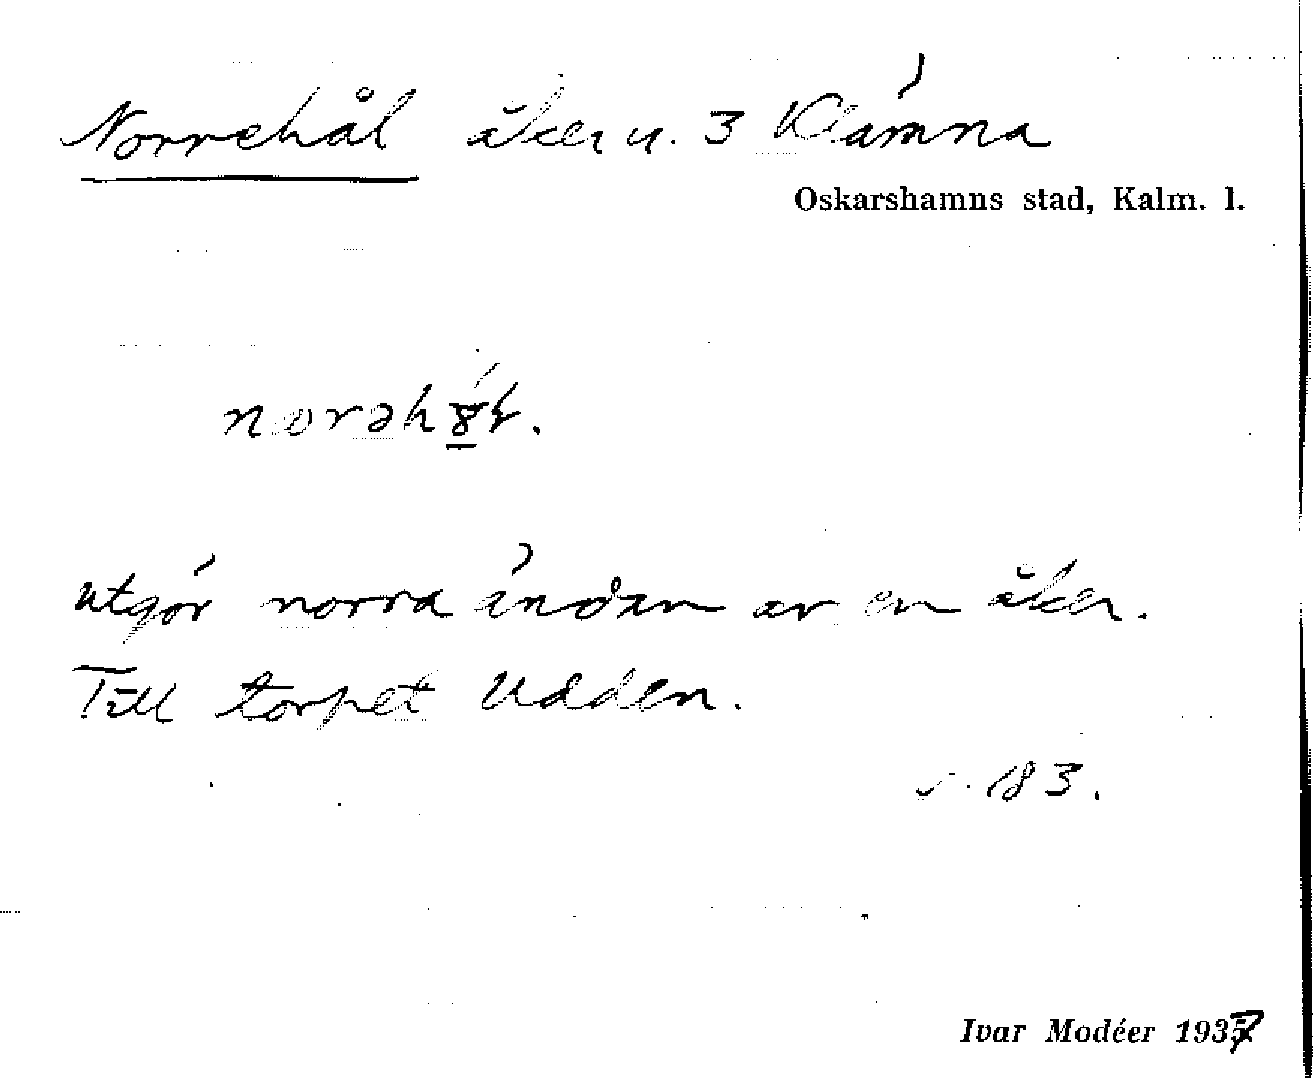 Norrehål åker u. 3 Klämna
Oskarshamns stad, Kalm. l.
utgör norra ändan av en åker.
Till torpet Udden.
s. 183.
Ivar Modéer 1937